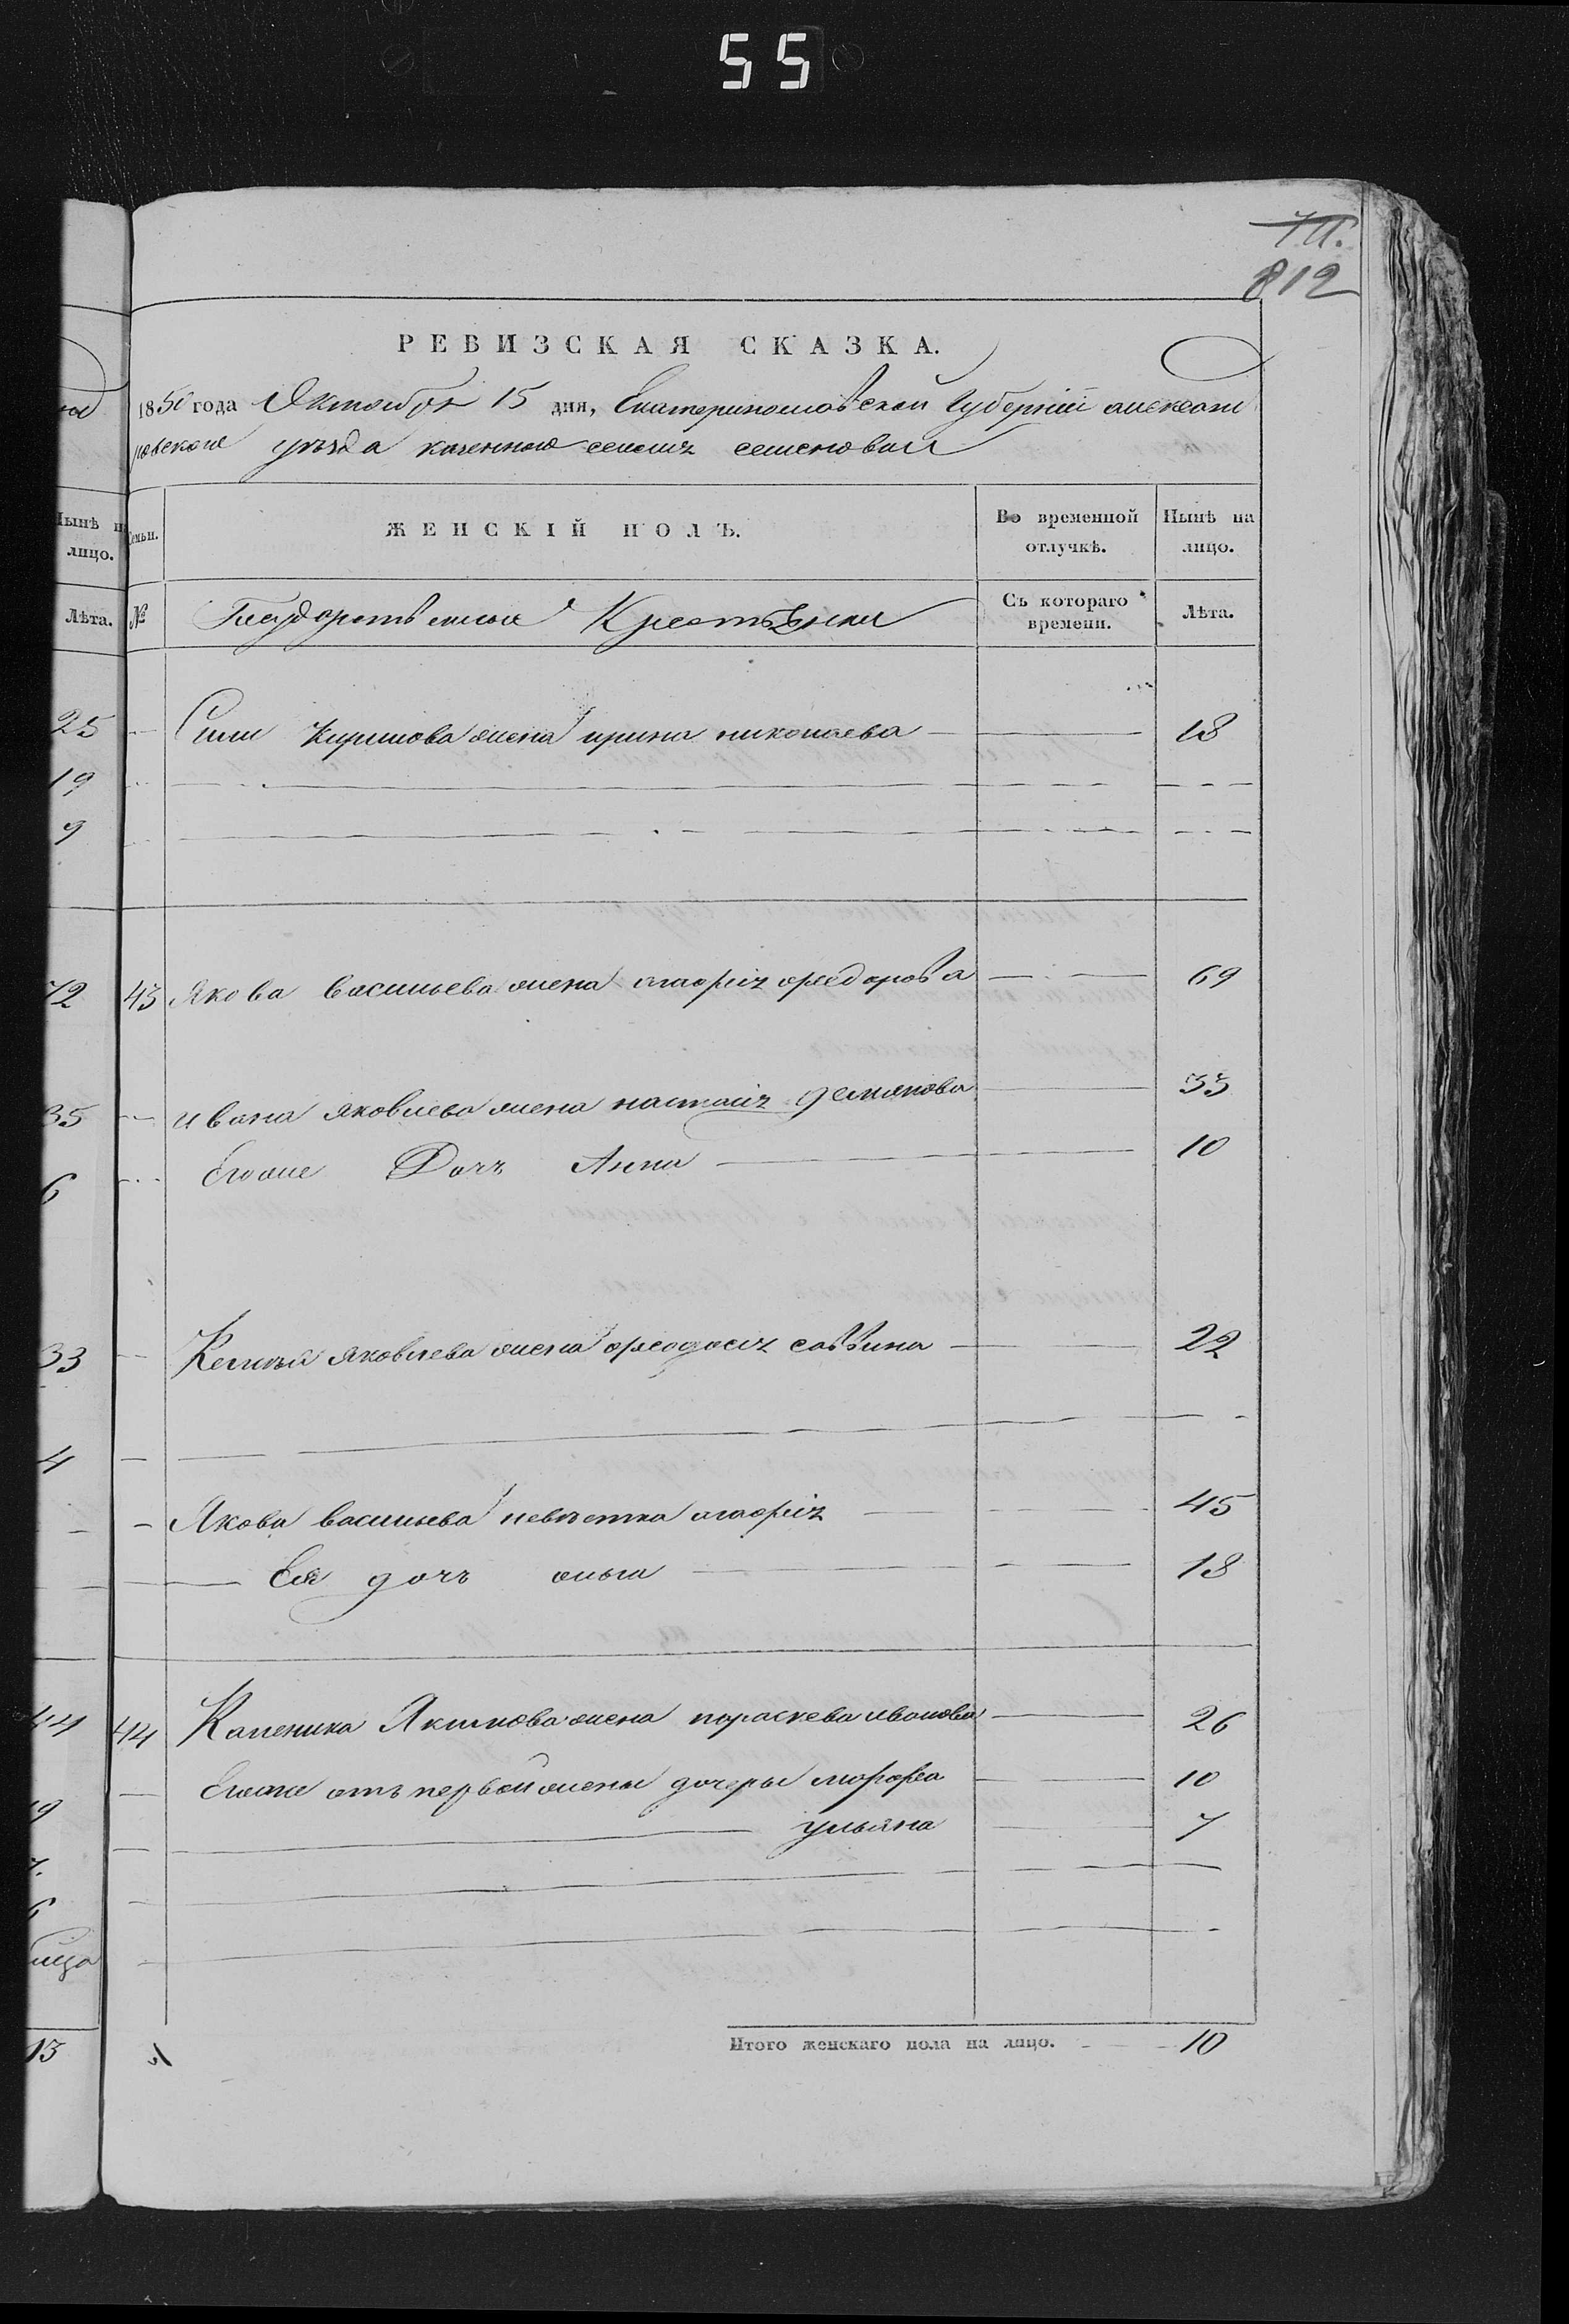 55
812
РЕВИЗСКАЯ СКАЗКА.
1850 года Октября 15 дня, Екатеринославской Губернiи александ
ровскаго уѣзда казеннаго селенiя семеновки
Нынѣ на лицо.
Семьи.
ЖЕНСКІЙ ПОЛЪ.
Во временной отлучкѣ.
Нынѣ на лицо.
Лѣта.
№
Государственные Крестьяни
Съ котораго времени.
Лѣта.
25 Силы Кирилова жена ирина николаева 18
19
9
72 43 Якова васильева жена марiя федорова 69
35 ивана яковлева жена настасiя демянова 33
6 Егоже Дочь Анна 10
33 яковлева жена феодосiя саввина 22
4
Якова васильева невѣстка марiя 45
Ея дочь ольга 18
44 44 Каленика Якимова жена параскева иванова 26
Егоже отъ первой жены дочеры марфа 10
19 ульяна 7
7.
6
13 Итого женскаго пола на лицо. 10